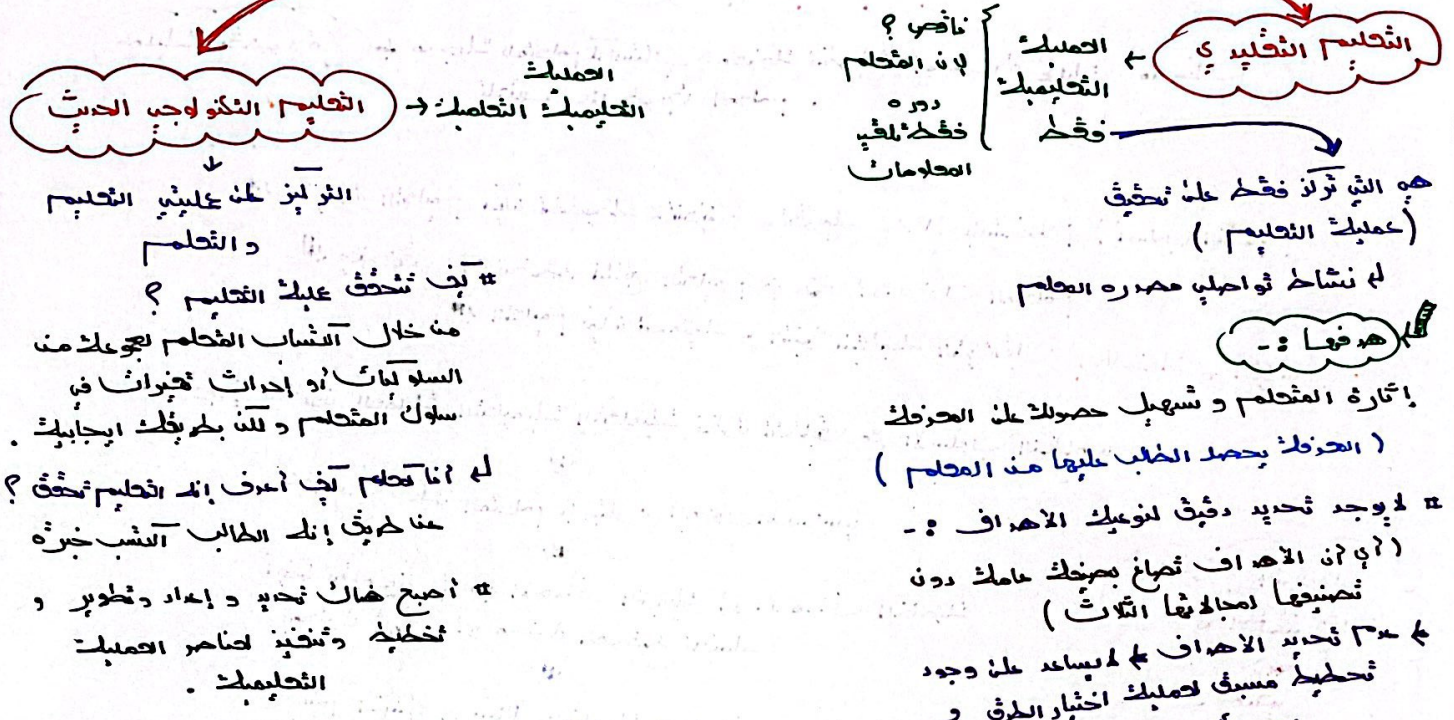 التعليم التقليدي
← العملية
التعليمية
فقط
ناقص ؟
لأن المتعلم
دوره
فقط تلقي
المعلومات
هي التي تركز فقط على تحقيق
(عملية التعليم )
نشاط تواصلي مصدره المعلم
هدفها :-
إثارة المتعلم و تسهيل حصوله على المعرفة
( المعرفة يحصل الطالب عليها من المعلم )
# لا يوجد تحديد دقيق لنوعية الأهداف :-
(أي أن الأهداف تصاغ بصيغة عامة دون
تصنيفها لمجالاتها الثلاث )
عدم تحديد الأهداف لا يساعد على وجود
تخطيط مسبق لعملية اختيار الطرق و
التعليم التكنولوجي الحديث
→ العملية
التعليمية التعلمية
↓
التركيز على عمليتي التعليم
والتعلم
# كيف تتحقق عملية التعليم ؟
من خلال اكتساب المتعلم لمجموعة من
السلوكيات أو إحداث تغيرات في
سلوك المتعلم و لكن بطريقة ايجابية .
أنا كمعلم كيف أعرف إنه التعليم تحقق ؟
عن طريق إنه الطالب اكتسب خبرة
# أصبح هناك تحديد و إعداد وتطوير و
تخطيط وتنفيذ لعناصر العملية
التعليمية .